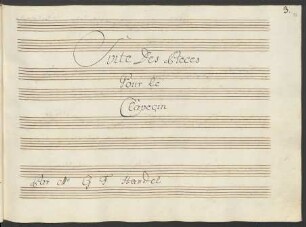 3.
Suite Des Pieces
Pour le
Clavecin
Par Mr G F Handel